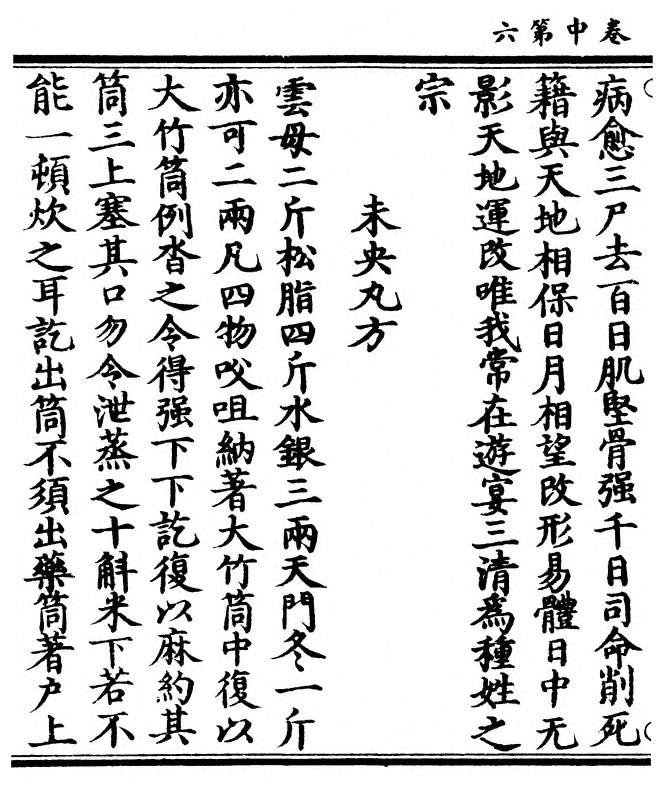 卷中第六
病愈三尸去百日肌堅骨强千日司命削死
籍與天地相保日月相望改形易體日中无
影天地運改唯我常在遊宴三清爲種姓之
宗
未央丸方
雲母二斤松脂四斤水銀三兩天門冬一斤
亦可二兩凡四物㕮咀納著大竹筒中復以
大竹筒例沓之令得强下下訖復以麻約其
筒三上塞其口勿令泄蒸之十斛米下若不
能一頓炊之耳訖出筒不須出藥筒著户上